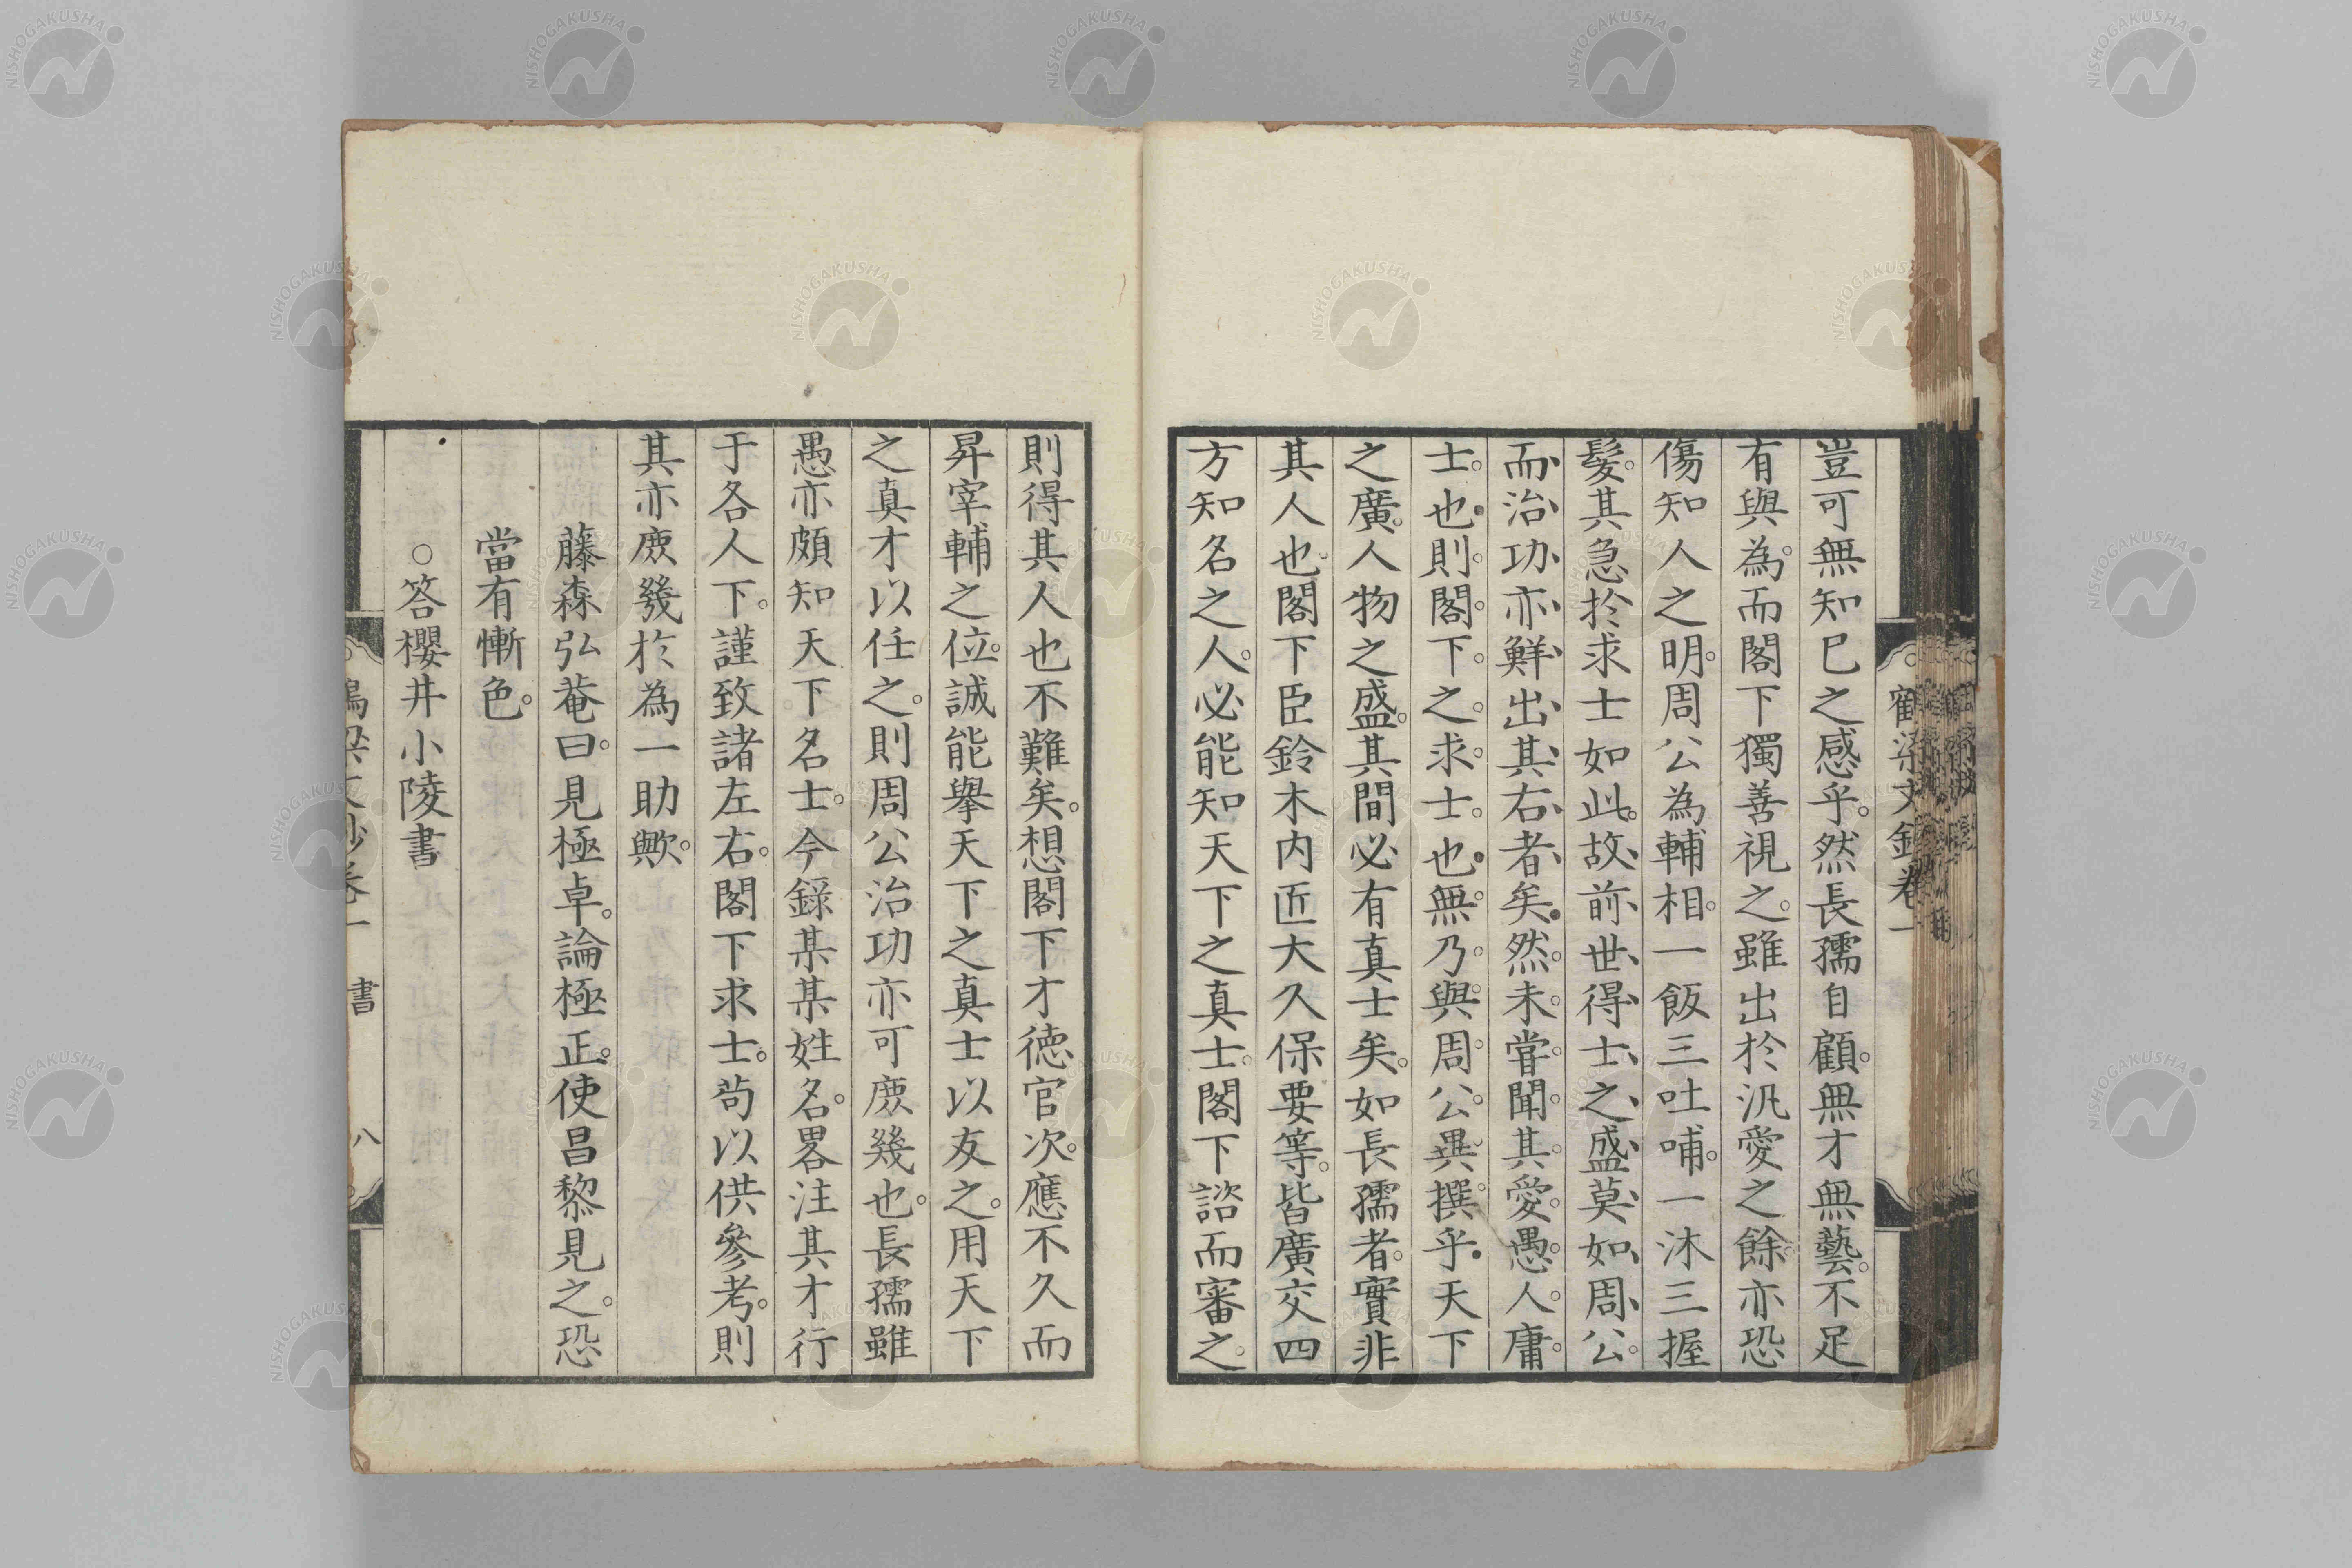 豈可無知己之感乎。然長孺自顧。無才無藝。不足
有與為。而閣下獨善視之。雖出於汎愛之餘。亦恐
傷知人之明。周公為輔相。一飯三吐哺。一沐三握
髮。其急於求士如此。故前世得士之盛莫如周公。
而治功亦鮮出其右者矣。然未甞聞其愛愚人庸
士。也則閣下之求士也。無乃與周公異撰乎。天下
之廣。人物之盛。其間必有真士矣。如長孺者。實非
其人也。閣下臣鈴木內匠大久保要等。皆廣交四
方知名之人。必能知天下之真士。閣下諮而審之。
則得其人也不難矣。想閣下才德官次。應不久而
昇宰輔之位。誠能擧天下之真士以友之。用天下
之真才以任之。則周公治功亦可庻幾也。長孺雖
愚亦頗知天下名士。今錄某某姓名。畧注其才行
于各人下。謹致諸左右。閣下求士。苟以供參考。則
其亦庻幾於為一助歟。
藤森弘菴曰。見極卓。論極正。使昌黎見之。恐
當有慚色。
○答櫻井小陵書
書 八